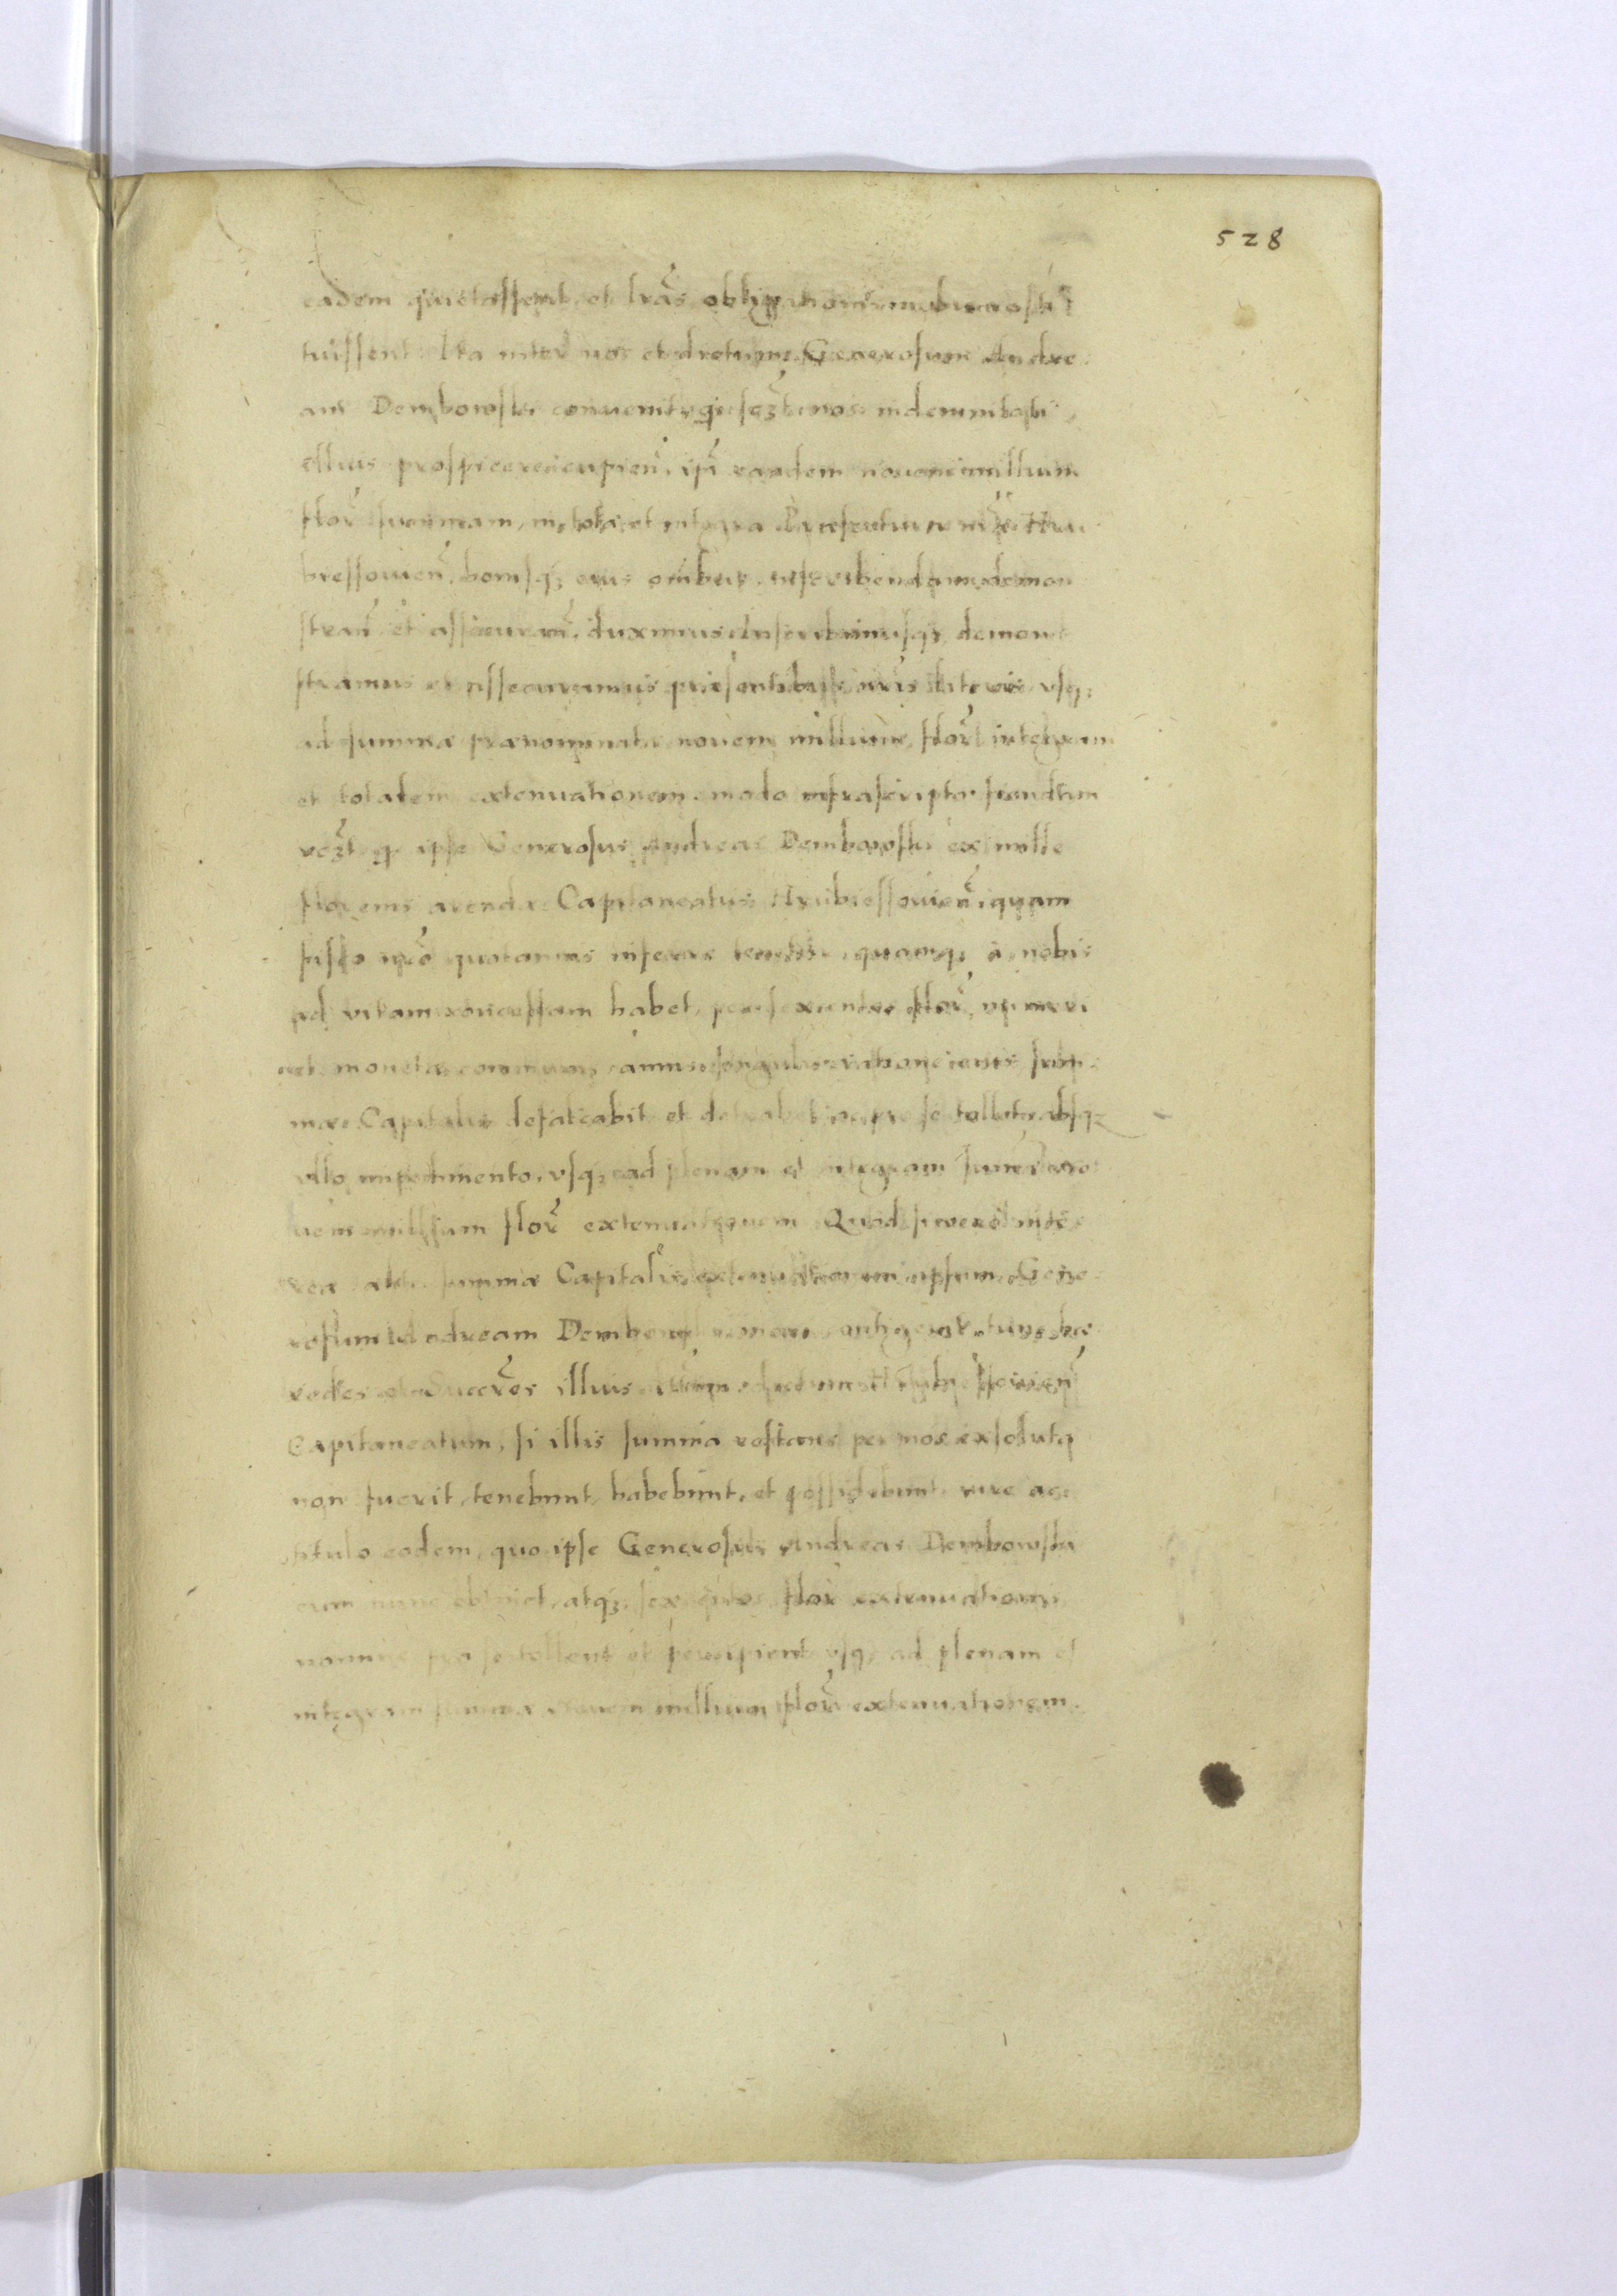 528
eadem quietassent, et lrãs obligationis nobis resti
tuissent. Ita inter nos et dictum Generosum Andre
am Dembowski convenit, qui scz̃t nos indemnitati
illius prospicere cupien̄. ipi̇ eandem novem millium
flor̃ summam, in tota et integra Praefectura nr̃a Hru
bessovien̄. bonisq; eius om̃ibus inscribendam demon
stran̄ et assecuran̄. duximus. Inscribimusq; demon
stramus et assecuramus praesentibus nr̃is literis vsq;
ad summae praenominatae novem millium flor̃ integram
et totalem extenuationem. modo infrascripto. fiendum
vcz̃t q ipse Generosus Andreas Dembowski ex mille
florenis arendae Capitaneatus Hrubiessovien̄, quam
fisco nr̃o quotannis inferre tenetur, quamq; à nobis
ad vitam concessam habet, per sexcentos flor̃, numeri
et monetae communis, annis singulis ratione sum
mae Capitalis defalcabit et detrahet ac pro se tollet, absq;
vllo impedimento, vsq; ad plenam et integram summae no
vem millium flor̃ extenuationem. Quod si vero inte
rea ante summae Capitalis extenuationem ipsum Gene
rosum Andream Dembowski mori contigerit, tunc hae
redes et succr̃es illius dictum Hrubessovien̄
Capitaneatum, si illis summa restans per nos exsoluta
non fuerit, tenebunt, habebunt, et possidebunt, iure ac
titulo eodem, quo ipse Generosus Andreas Dembowski
eum nunc obtinet, atq; sexcentos flor̃ extenuationis
nomine pro se tollent et percipient vsq; ad plenam et
integram summae novem millium flor̃ extenuationem.